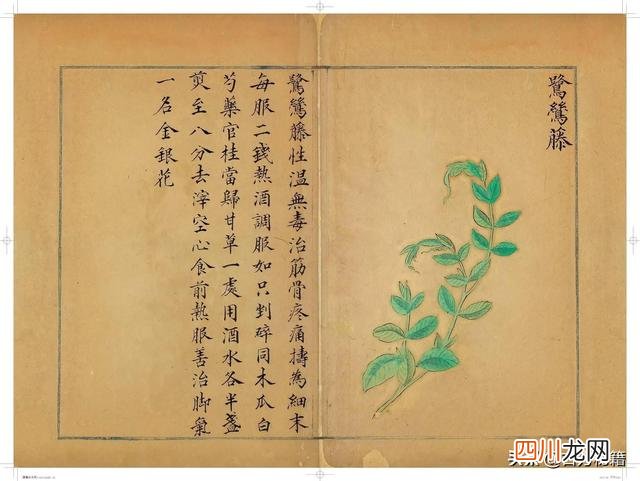 鷺鷥藤
鷺鷥藤性溫無毒治筋骨疼痛擣為細末
每服二錢熱酒調服如只剉碎同木瓜白
芍藥官桂當歸甘草一處用酒水各半盞
煎至八分去滓空心食前熱服善治脚氣
一名金銀花
四川龙网